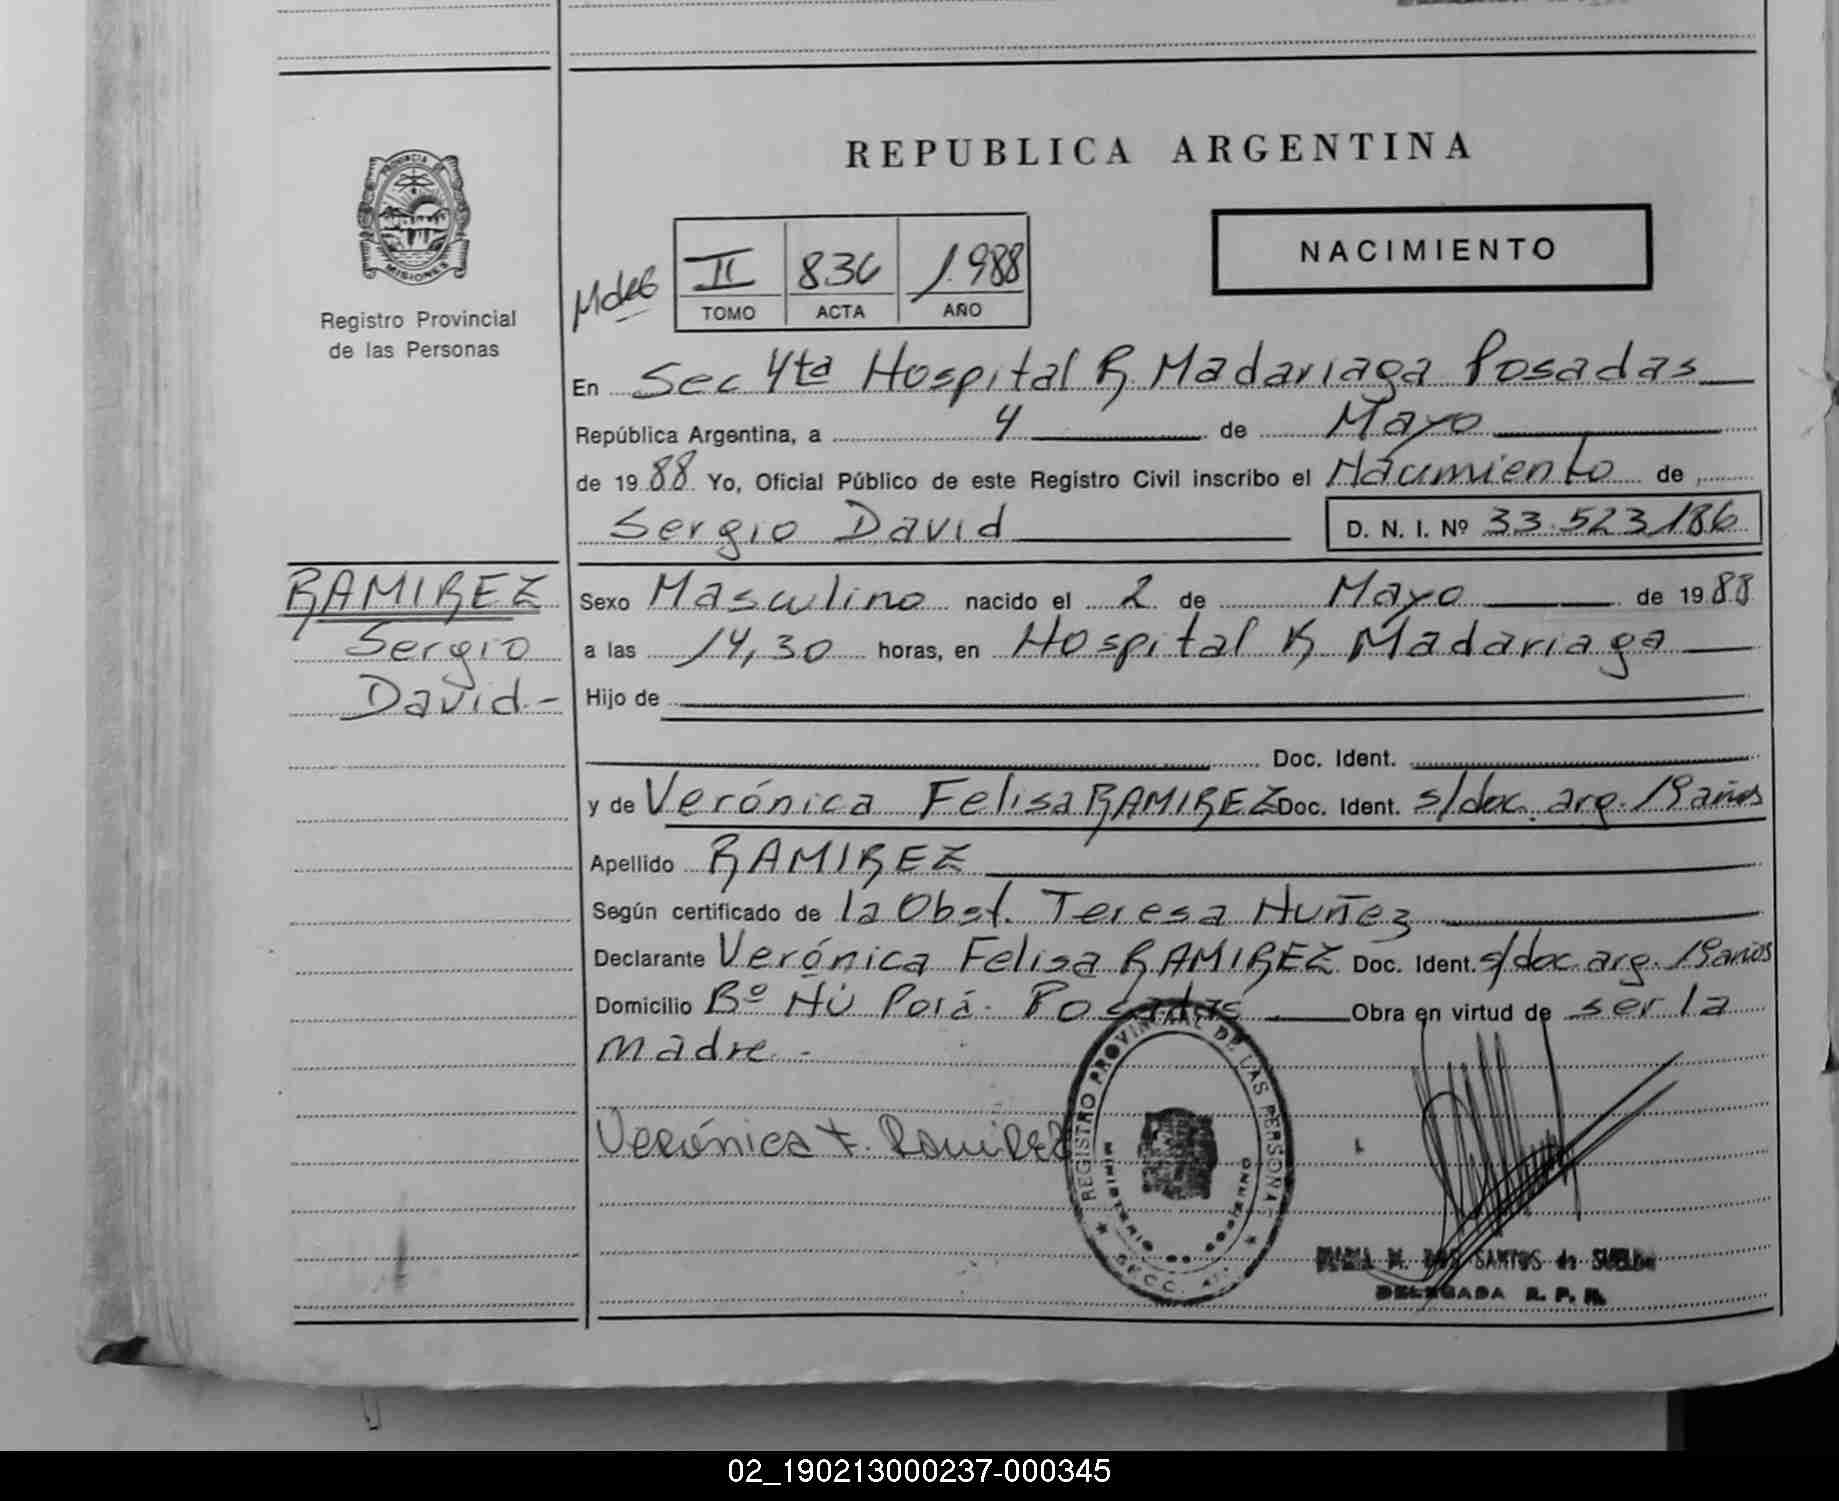 REPUBLICA ARGENTINA
PROVINCIA DE
MISIONES
Registro Provincial
de las Personas
NACIMIENTO
II 836 1.988
TOMO ACTA AÑO
En Sec 4ta Hospital R Madariaga Posadas
República Argentina, a 4 de Mayo
de 1988 Yo, Oficial Público de este Registro Civil inscribo el Nacimiento de
Sergio David D. N. I. Nº 33.523.186
RAMIREZ
Sergio
David.-
Sexo Masculino nacido el 2 de Mayo de 1988
a las 14,30 horas, en Hospital R Madariaga
Hijo de
Doc. Ident.
y de Verónica Felisa RAMIREZ Doc. Ident. s/doc. arg. 19 años
Apellido RAMIREZ
Según certificado de la Obst. Teresa Nuñez
Declarante Verónica Felisa RAMIREZ Doc. Ident. s/doc. arg. 19 años
Domicilio Bº Ñú Porá. Posadas Obra en virtud de ser la
madre.-
Verónica F. Ramirez
REGISTRO PROVINCIAL DE LAS PERSONAS
MINISTERIO DE GOBIERNO
MARIA M. DOS SANTOS de SUELDO
DELEGADA R. P. P.
02_190213000237-000345